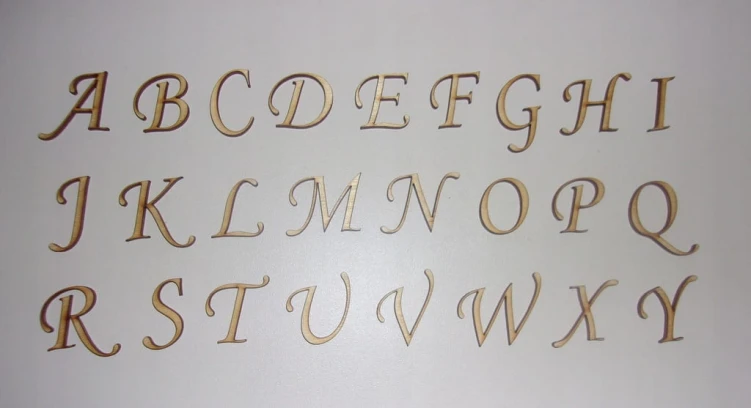 A B C D E F G H I
J K L M N O P Q
R S T U V W X Y